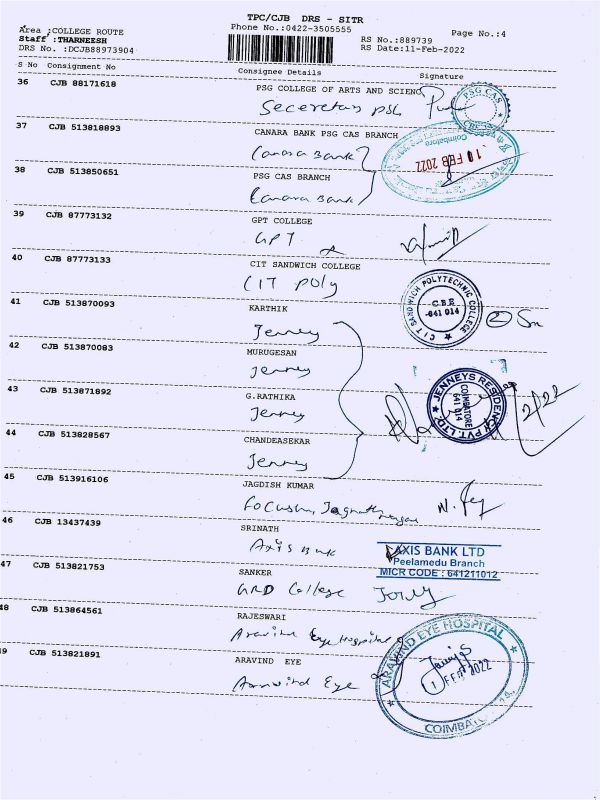 TPC/CJB DRS - SITR
Area :COLLEGE ROUTE
Phone No.:0422-3505555
Page No.:4
Staff :THARNEESH
RS No.:889739
DRS No. :DCJB88973904
RS Date:11-Feb-2022
S No Consignment No Consignee Details Signature
36 CJB 88171618 PSG COLLEGE OF ARTS AND SCIENC
PSG CAS
37 CJB 513818893 CANARA BANK PSG CAS BRANCH
Canara Bank
Coimbatore
10 FEB 2022
38 CJB 513850651 PSG CAS BRANCH
Canara Bank
39 CJB 87773132 GPT COLLEGE
GPT
40 CJB 87773133 CIT SANDWICH COLLEGE
CIT poly
CIT SANDWICH POLYTECHNIC COLLEGE
C.B.E
-641 014
41 CJB 513870093 KARTHIK
Jenney
42 CJB 513870083 MURUGESAN
Jenney
43 CJB 513871892 G.RATHIKA
Jenney
JENNEYS RESIDENCY PVT.LTD.
COIMBATORE
641 014
44 CJB 513828567 CHANDEASEKAR
Jenney
45 CJB 513916106 JAGDISH KUMAR
46 CJB 13437439 SRINATH
Axis Bank
AXIS BANK LTD
Peelamedu Branch
MICR CODE : 641211012
47 CJB 513821753 SANKER
GRD College
48 CJB 513864561 RAJESWARI
Aravind Eye Hospital
49 CJB 513821891 ARAVIND EYE
Aravind Eye
ARAVIND EYE HOSPITAL
1 FEB 2022
COIMBATORE